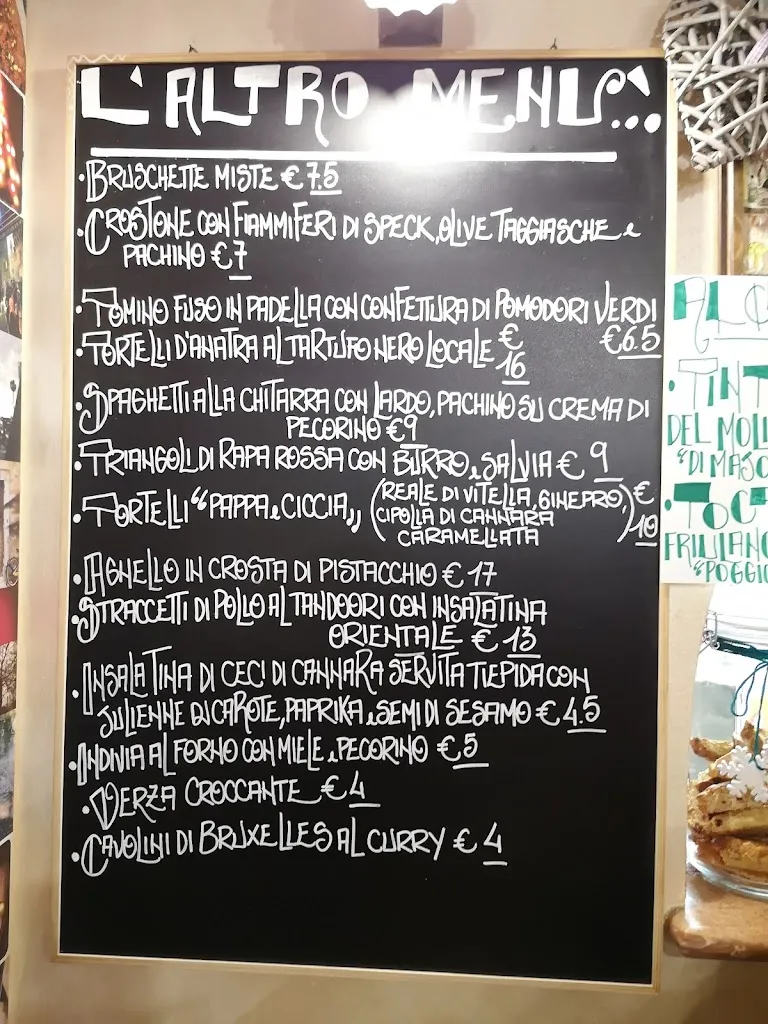 L'ALTRO MENU'...
• BRUSCHETTE MISTE € 7.5
• CROSTONE CON FIAMMIFERI DI SPECK, OLIVE TAGGIASCHE e
PACHINO € 7
• TOMINO FUSO IN PADELLA CON CONFETTURA DI POMODORI VERDI
€ 6.5
• TORTELLI D'ANATRA AL TARTUFO NERO LOCALE €
16
• SPAGHETTI ALLA CHITARRA CON LARDO, PACHINO SU CREMA DI
PECORINO € 9
• TRIANGOLI DI RAPA ROSSA CON BURRO e SALVIA € 9
• TORTELLI "PAPPA e CICCIA" (REALE DI VITELLA, GINEPRO,
CIPOLLA DI CANNARA
CARAMELLATA) € 10
• AGNELLO IN CROSTA DI PISTACCHIO € 17
• STRACCETTI DI POLLO AL TANDOORI CON INSALATINA
ORIENTALE € 13
• INSALATINA DI CECI DI CANNARA SERVITA TIEPIDA CON
JULIENNE DI CAROTE, PAPRIKA e SEMI DI SESAMO € 4.5
• INDIVIA AL FORNO CON MIELE e PECORINO € 5
• VERZA CROCCANTE € 4
• CAVOLINI DI BRUXELLES AL CURRY € 4
• TINT
DEL MOLI
"DI MASC
• TOC
FRIULANO
"POGGIO